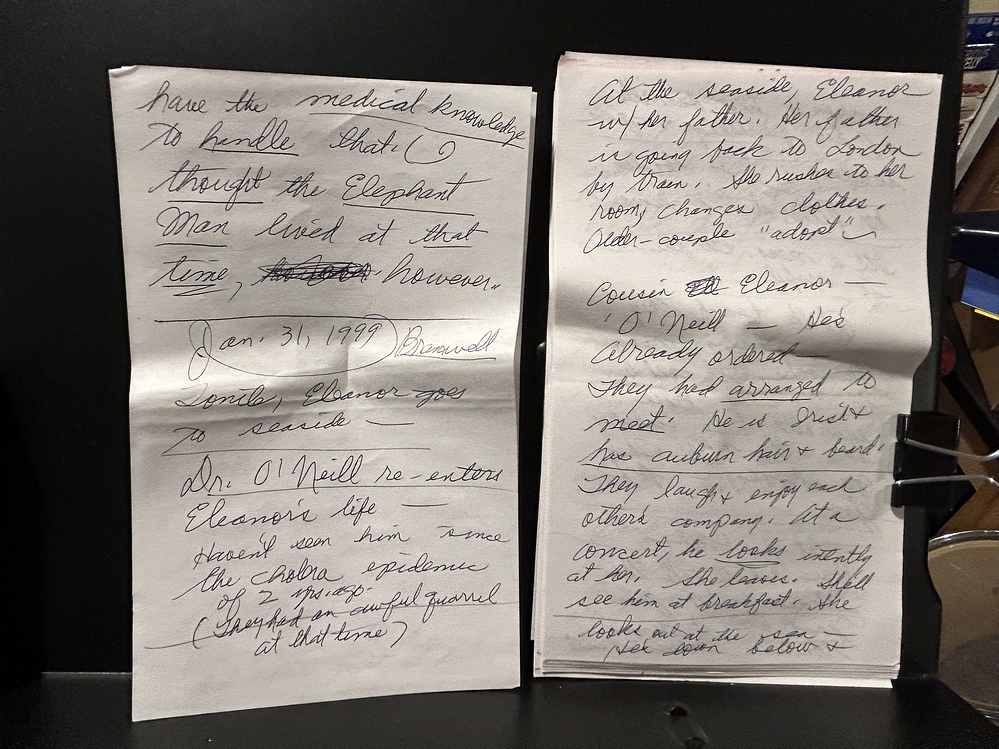 have the medical knowledge
to handle that. (I
thought the Elephant
Man lived at that
time, however..
Jan. 31, 1999 Bramwell
Tonite, Eleanor goes
to seaside —
Dr. O'Neill re-enters
Eleanor's life —
Haven't seen him since
the cholra epidemic
of 2 yrs. ago.
(They had an awful quarrel
at that time)
At the seaside, Eleanor
w/ her father. Her father
is going back to London
by train. She rushes to her
room, changes clothes.
Older-couple "adopt"
Cousin Eleanor —
'O'Neill — He's
already ordered —
They had arranged to
meet. He is Irish &
has auburn hair & beard.
They laugh & enjoy each
others company. At a
concert, he looks intently
at her. She leaves. She'll
see him at breakfast. She
looks out at the sea —
He's down below &